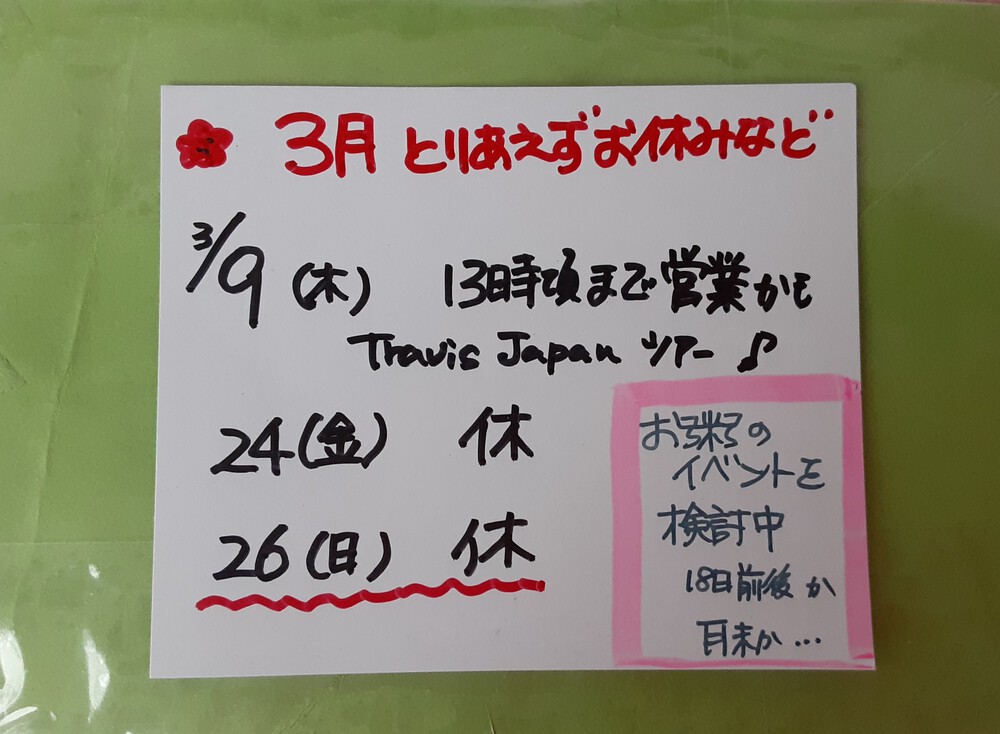 3月 とりあえずお休みなど
3/9(木) 13時頃まで営業かも
Travis Japan ツアー♪
24(金) 休
26(日) 休
お粥の
イベントを
検討中
18日前後か
月末か…